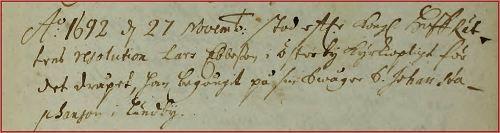 Aº 1692 d 27 Novemb: stod effter Kongl Hoffrät-
tens resolution Lars Ebbeson i Österby Kyrkioplicht för
det dråpet, han begångit på sin Swåger S. Johan Sta-
phanson i Lundby.